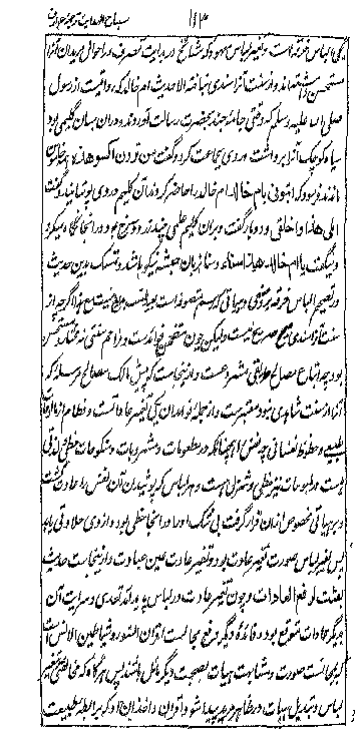 ۱۱۴ مصباح الهدایت ترجمهٔ عوارف
یکی الباس خرقه است و تغییر لباس معهود که مشایخ در بدایت تصرف در احوال مریدان آنرا
مستحسن داشته‌اند و از سنت آنرا سندی نیافته الا حدیث ام خالد که روایت است از رسول
صلی الله علیه وسلم که وقتی جامهٔ چند بحضرت رسالت آوردند و در آن میان گلیمی بود
سیاه کوچک آنرا برداشت و روی بجماعت کرد و گفت من ترون اکسو هذه خاموش
ماندند فرمود که ایتونی بام خالد ام خالد را حاضر کردند آن گلیم در وی پوشانید و گفت
ابلی هذا و اخلقی دو بار گفت و بران گلیم علمی چند زرد و سرخ بود در آنجا نگاه میکرد
و میگفت یا ام خالد هذا سناء و سنا بزبان حبشه نیکو باشد و تمسک بدین حدیث
در تصحیح الباس خرقه بر وضعی و هیاتی که رسم متصوفه است اگرچه از
سنت آنرا سندی صریح نیست ولیکن چون متضمن فوائد است و مزاحم سنتی نه مختار و مستحسن
بود چه اتباع مصالح مشروع است و از اینجاست که مالک مصالح مرسله که
آنرا از سنت شاهدی نبود معتبر است و از جمله فوائد آن یکی تغییر عادات است و فطام از مالوفات
طبیعی و حظوظ نفسانی چه نفس را همچنانکه در مطعومات و مشروبات و منکوحات حظی و لذتی
هست در ملبوسات نیز حظی و شربی است و هر لباس که پوشیدن آن نفس را عادت گشت
و بر هیاتی مخصوص از آن قرار گرفت بی شک او را در آنجا حظی بود و از وی حلاوتی یابد
پس تغییر لباس صورت تغییر عادت بود و تغییر عادت عین عبادت و از اینجاست حدیث
بعثت لرفع العادات و چون تغییر عادت در لباس پدید آید تعدی و سرایت آن
بدیگر عادات متوقع بود و فائدهٔ دیگر دفع مجالست اقران السوء و شیاطین الانس است
که بمجالست صورت و مشابهت هیات بصحبت دیگر مائل باشند پس هرگاه که تغییر
لباس و تبدیل هیات در ظاهر مرید پیدا شود اقران و اخدان او که برابطه طبیعت